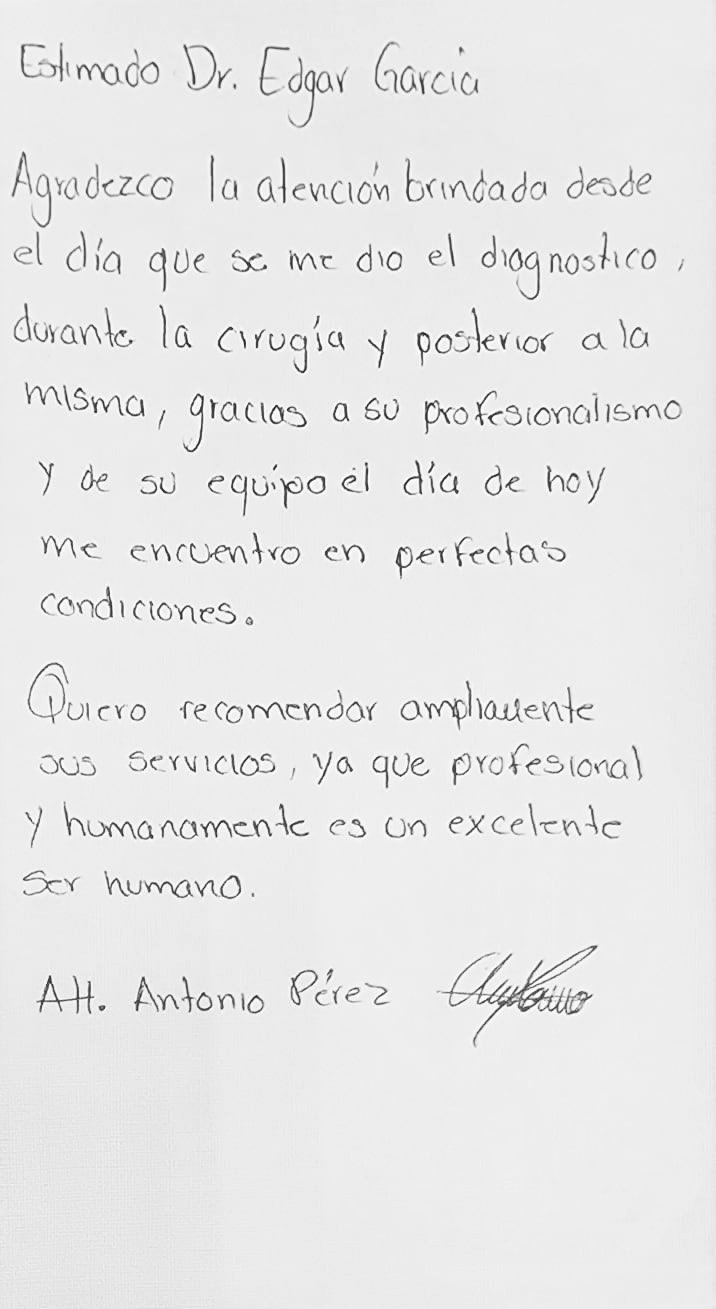 Estimado Dr. Edgar Garcia
Agradezco la atención brindada desde
el día que se me dio el diagnostico,
durante la cirugía y posterior a la
misma, gracias a su profesionalismo
y de su equipo el día de hoy
me encuentro en perfectas
condiciones.
Quiero recomendar ampliamente
sus servicios, ya que profesional
y humanamente es un excelente
ser humano.
Att. Antonio Pérez